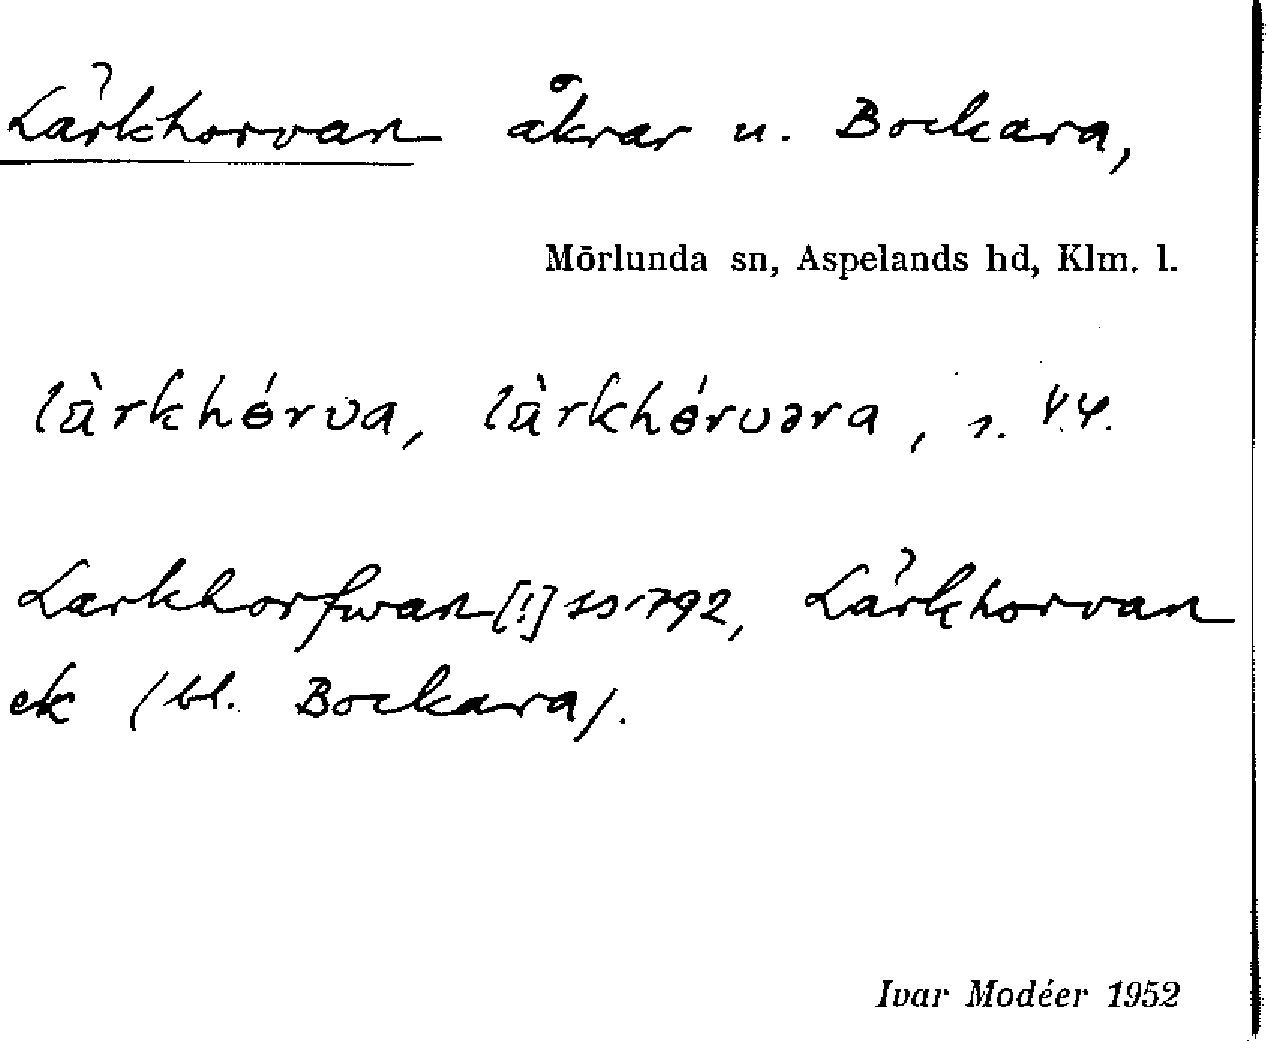 Lärkhorvan åkrar u. Bockara,
Mörlunda sn, Aspelands hd, Klm. l.
lä̀rkhórva, lä̀rkhórvəra,
Larkhorfwan [!] 1792, Lärkhorvan
ek (bl. Bockara).
Ivar Modéer 1952